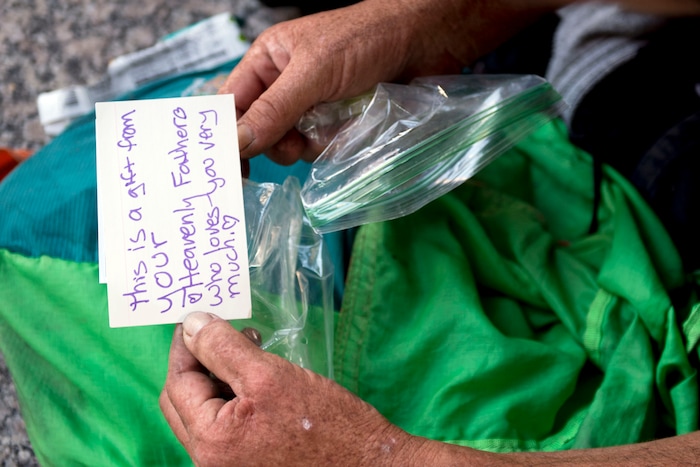 this is a gift from
your
Heavenly Fathers
who loves you very
much.♡